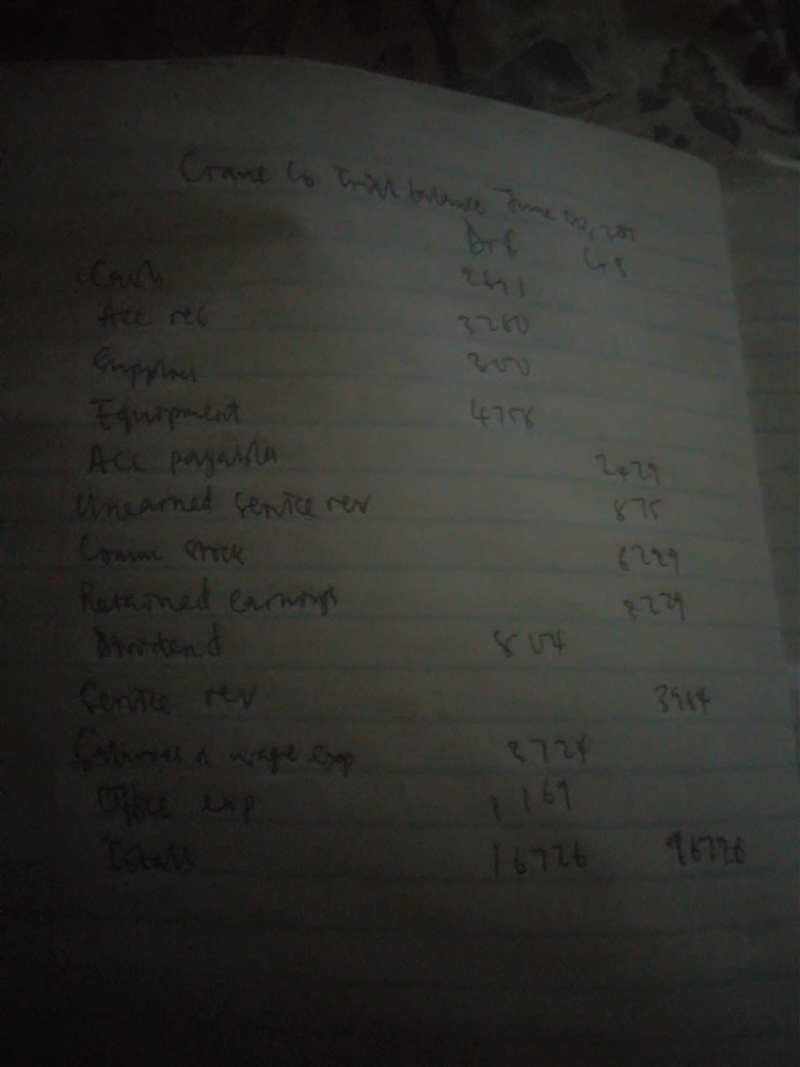 Crane Co Trial balance June 30,
Dr $ Cr $
Cash 2691
Acc rec 3280
Supplies 300
Equipment 4756
Acc payable 2429
Unearned service rev 875
Comm stock 6229
Retained earnings 3229
Dividend 804
Service rev 3964
Salaries & wage exp 3724
Office exp 1169
Total 16726 16726